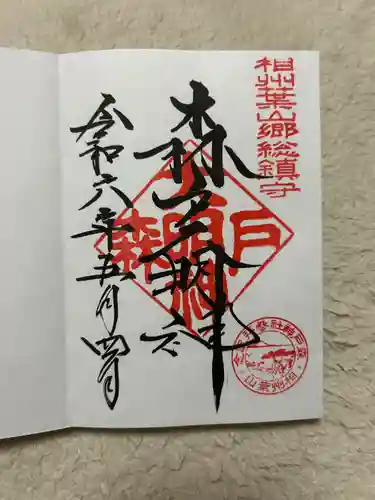 相州葉山郷総鎮守
森戸大明神
令和六年五月四日
森戸大明神
相州葉山